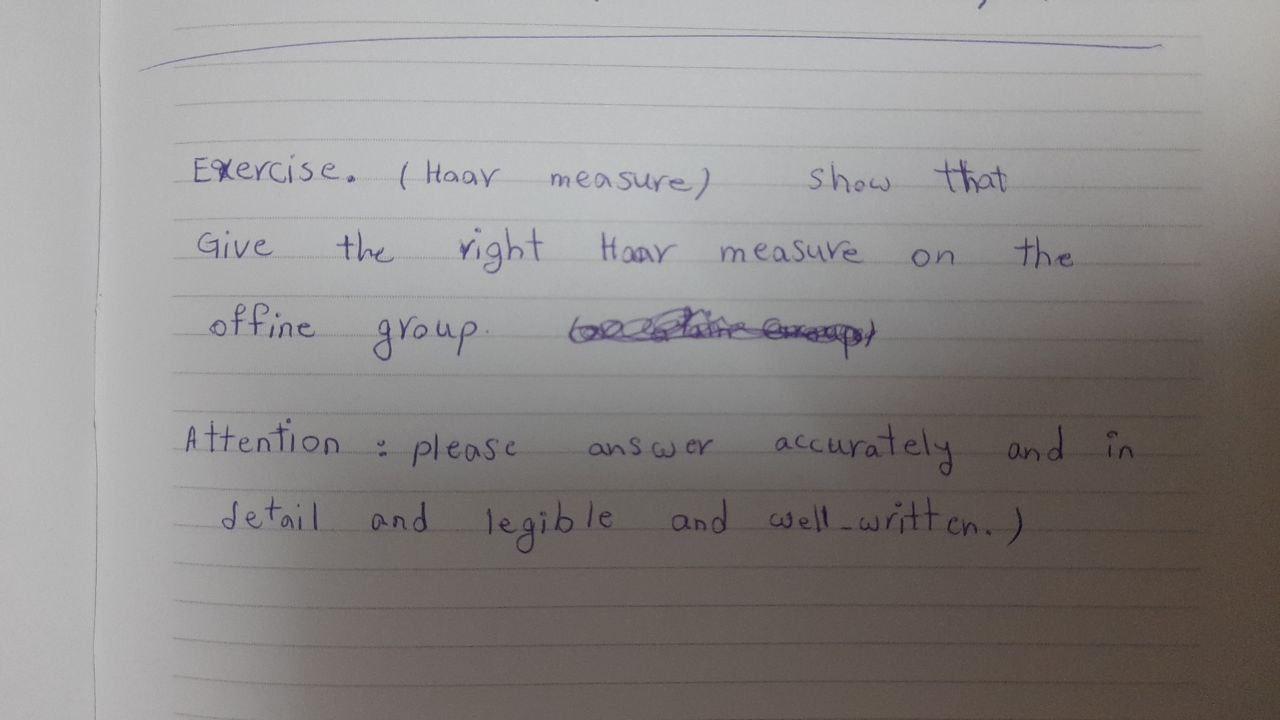 Exercise. (Haar measure) show that
Give the right Haar measure on the
offine group.
Attention : please answer accurately and in
detail and legible and well-written.)